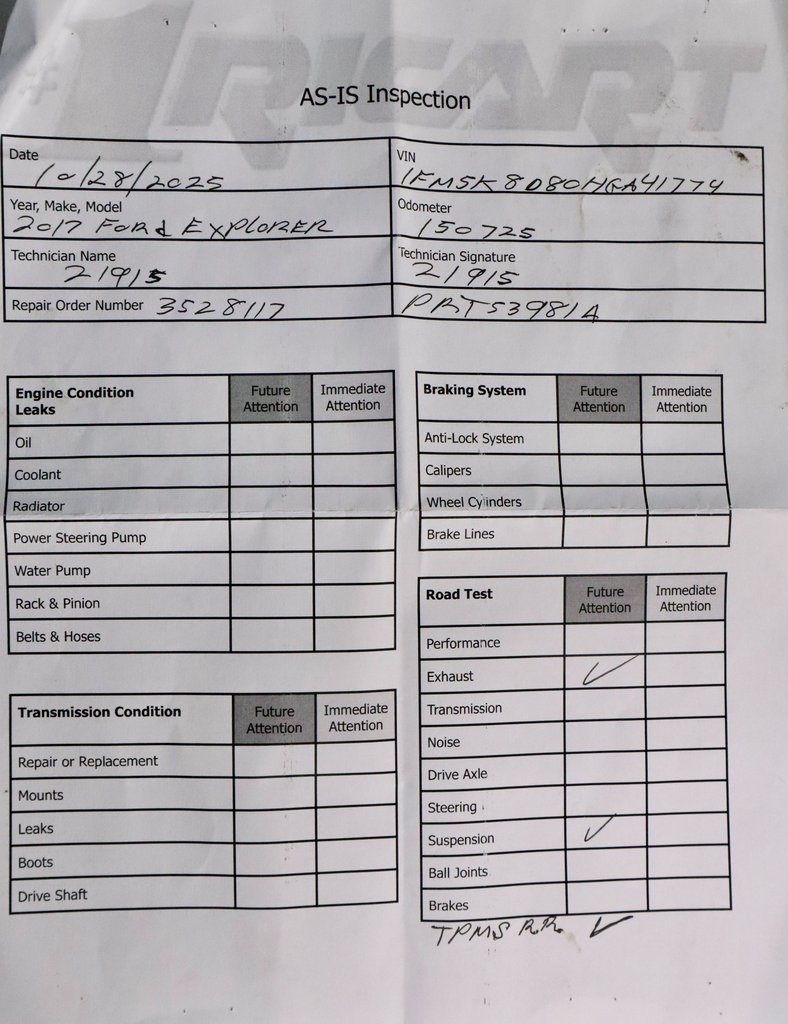 #1 RICART
AS-IS Inspection
Date 10/28/2025
VIN 1FM5K8D80HGA41774
Year, Make, Model 2017 Ford EXPLORER
Odometer 150725
Technician Name 21915
Technician Signature 21915
Repair Order Number 3528117
PRT53981A
Engine Condition Leaks Future Attention Immediate Attention
Oil
Coolant
Radiator
Power Steering Pump
Water Pump
Rack & Pinion
Belts & Hoses
Transmission Condition Future Attention Immediate Attention
Repair or Replacement
Mounts
Leaks
Boots
Drive Shaft
Braking System Future Attention Immediate Attention
Anti-Lock System
Calipers
Wheel Cylinders
Brake Lines
Road Test Future Attention Immediate Attention
Performance
Exhaust ✓
Transmission
Noise
Drive Axle
Steering
Suspension ✓
Ball Joints
Brakes
TPMS R.R. ✓